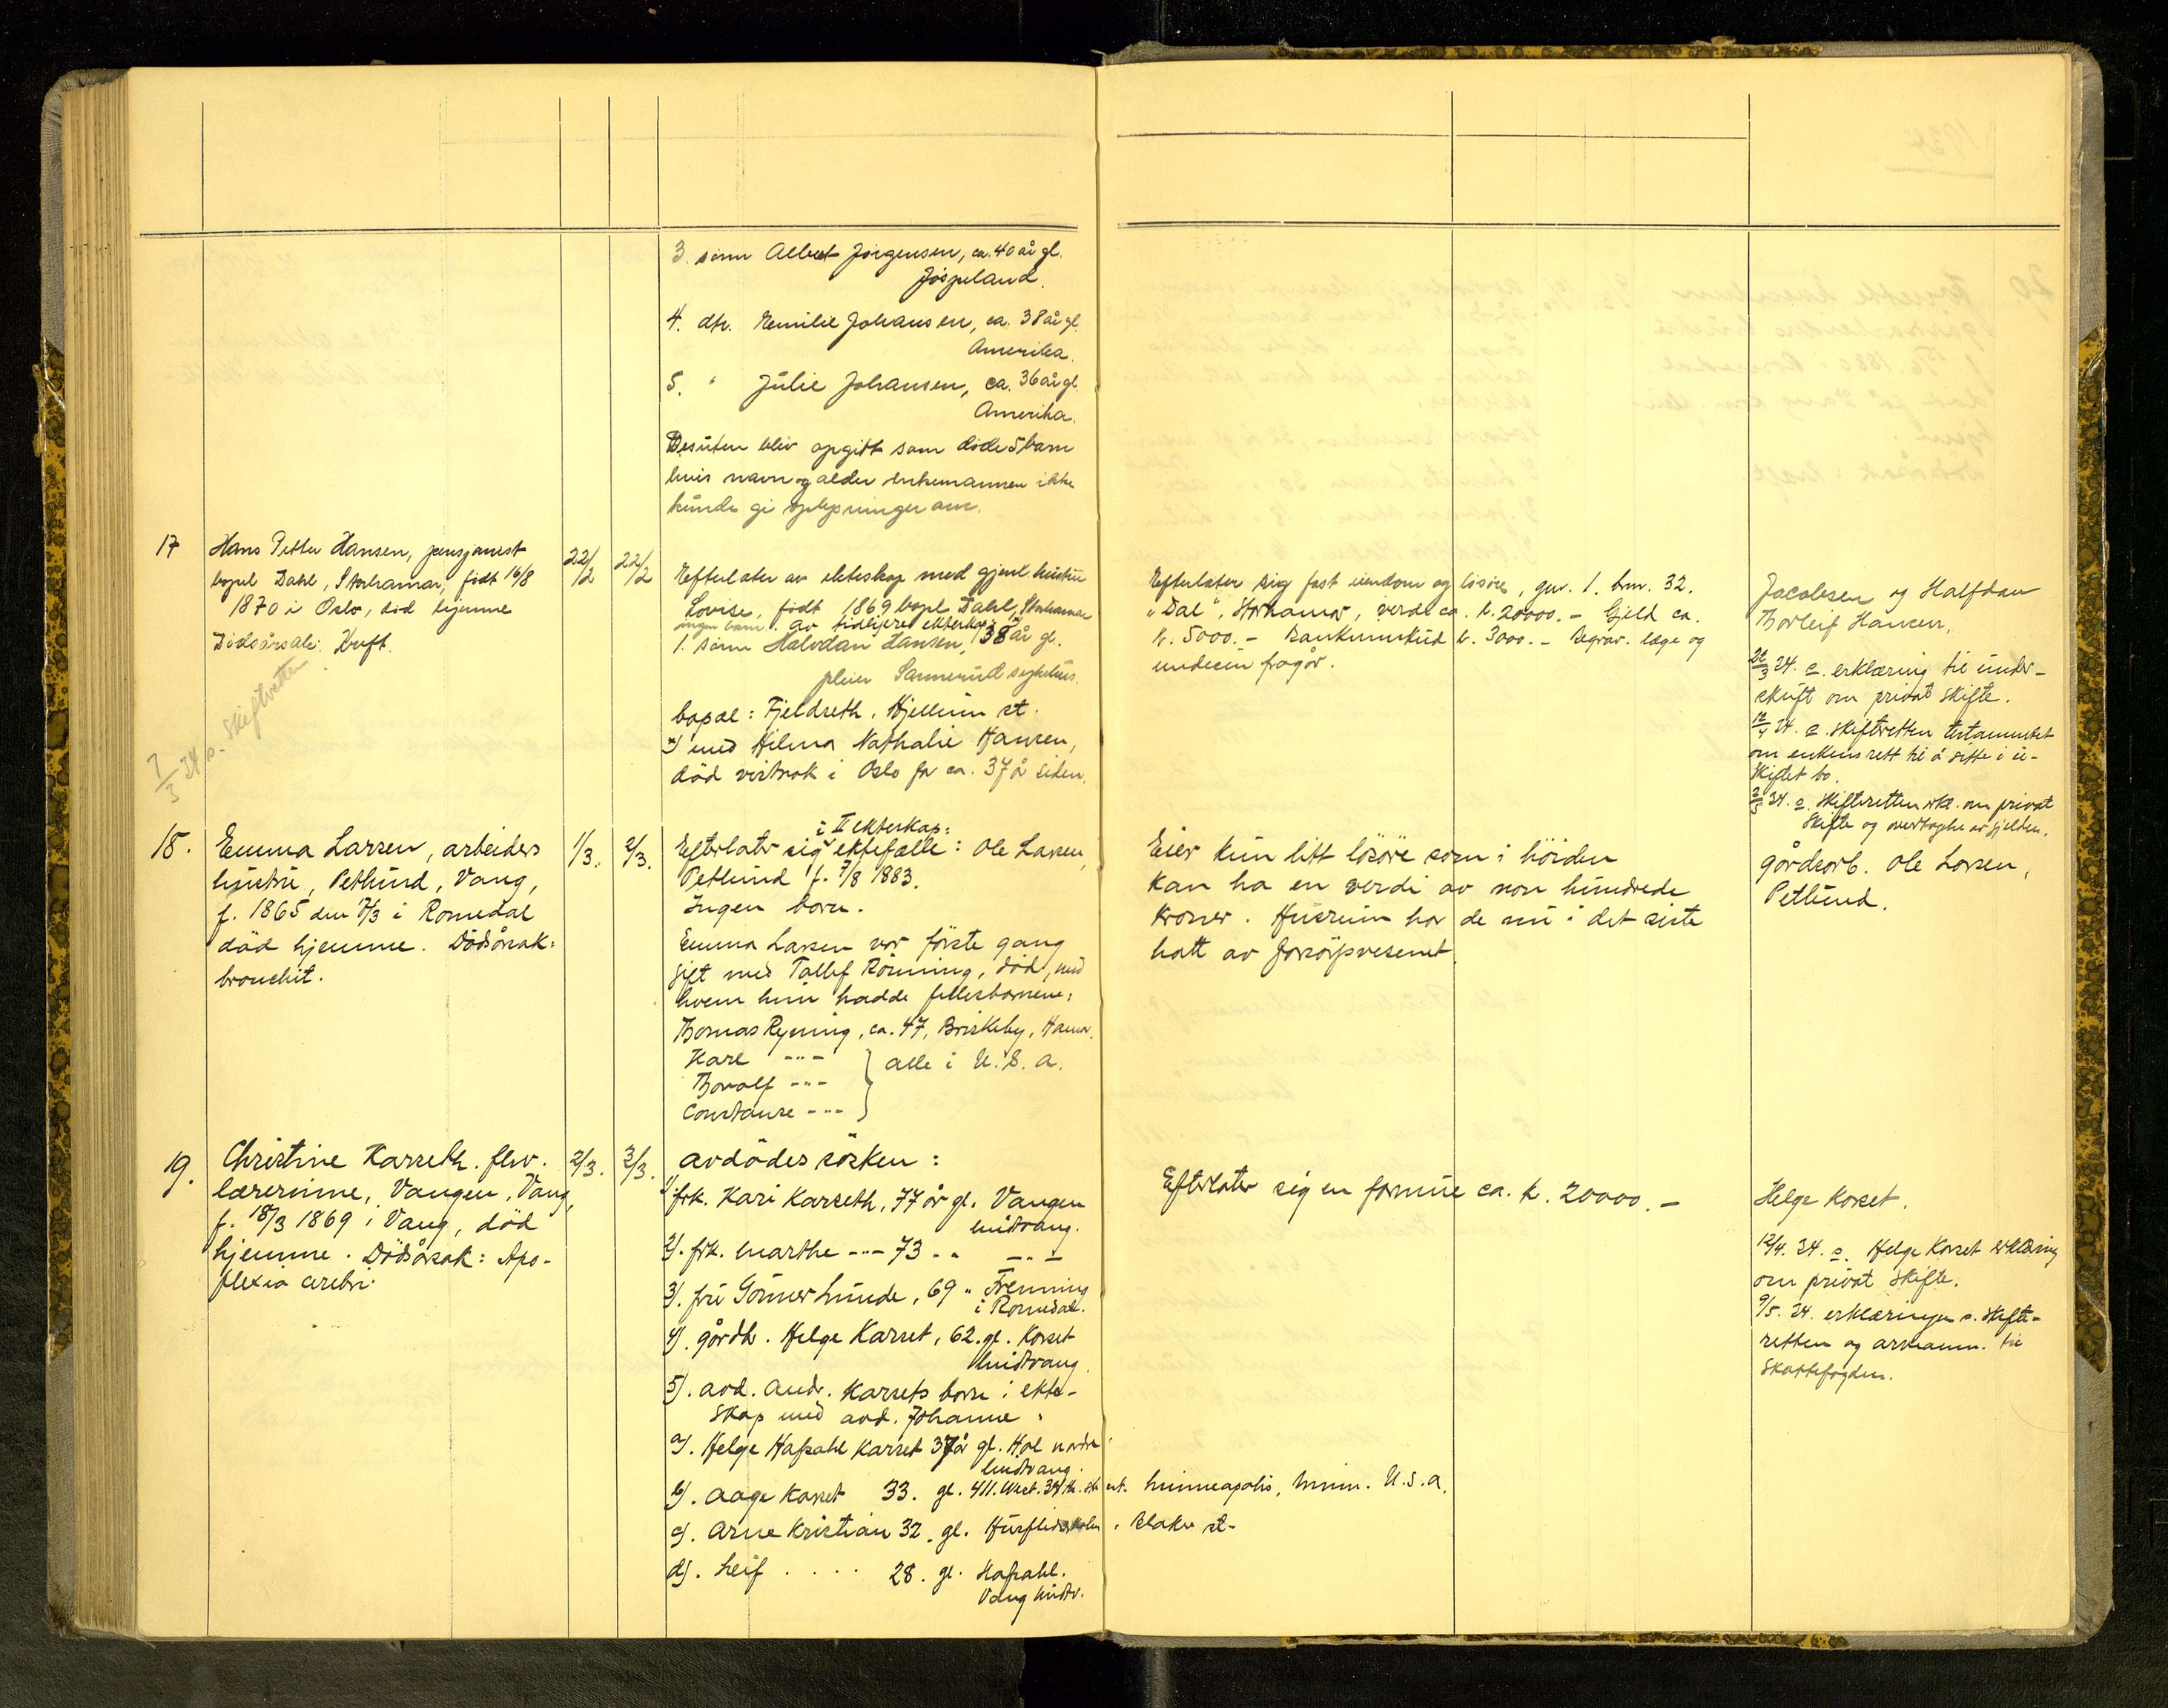 3. sønn Albert Jørgensen, ca. 40 år gl.
4. dtr. Emilie Johansen, ca. 38 år gl.
Amerika.
5. " Julie Johansen, ca. 36 år gl.
Amerika.
Desuten blev opgitt som døde 5 barn
hvis navn og alder enkemannen ikke
kunde gi oplysninger om.
17
Hans Petter Hansen, pensjonist
bopel Dahl, Storhamar, født 16/8
1870 i Oslo, død hjemme
Dødsårsak: Kreft.
7/3 34 s. skifteretten
22/2
22/2
Efterlater av ekteskap med gjenl. hustru
Lovise, født 1869 bopl Dahl, Storhamar
ingen barn. av tidligere ekteskap
1. sønn Halvdan Hansen, 38 år gl.
pleier Sannerud sykehus.
bopæl: Fjeldseth, Hjellum st.
med Hilma Nathalie Hansen,
död i Oslo for ca. 37 å siden.
Efterlater sig fast eiendom og løsøre, gnr. 1. bnr. 32.
"Dal", Storhamar, verdi ca. k. 20000.- Gjeld ca.
k. 5000.- Bankinnskud k. 3000.- Begrav. læge og
fragår.
Jacobsen og Halfdan
Thorleif Hansen.
/3 34. s. erklæring til under-
skrift om privat skifte.
12/4 34. s. Skifteretten testamentet
om enkens rett til å sitte i u-
skiftet bo.
2/5 34. s. Skifteretten erkl. om privat
skifte og overtagelse av gjelden.
18.
Emma Larsen, arbeiders
hustru, Petlund, Vang,
f. 1865 den 7/3 i Romedal
död hjemme. Dödsårsak:
bronchit.
1/3.
2/3.
i II ekteskap:
Efterlater sig ektefælle: Ole Larsen,
Petlund f. 7/8 1883.
Ingen born.
Emma Larsen var förste gang
gift med Tollef Rönning, död, med
hvem hun hadde fellesbornene:
Thomas Ryning, ca. 47, Briskeby, Hamar.
Karl -"-
Thoralf -"-
Constanse -"-
} alle i U.S.A.
Eier kun litt lösöre som i höiden
kan ha en verdi av non hundrede
kroner. Husrum har de nu i det siste
hatt av forsörgsvesenet.
gårdsarb. Ole Larsen,
Petlund.
19.
Christine Karseth. fhv.
lærerinne, Vangen, Vang,
f. 18/3 1869 i Vang, död
hjemme. Dödsårsak: Apo-
plexia cerebri.
2/3.
3/3.
avdödes sösken:
1). frk. Kari Karseth, 77 år gl. Vangen
Midtvang.
2). frk. Marthe -"- 73 " " -"-
3). fru Gunner Lunde, 69 " Frenning
i Romedal.
4). gårdb. Helge Karset, 62. gl. Korset
Midtvang.
5). avd. Andr. Karsets born i ekte-
skap med avd. Johanne:
a). Helge Hafsahl Karset 37 år gl. Hol nordre
Midtvang.
b). Aage Korset 33. gl. 411. West. 34th. street. Minneapolis, Minn. U.S.A.
c). Arne Kristian 32. gl. Husflidskolen, Blaker st-
d). Leif . . . . 28. gl. Hafsahl.
Vang Midtv.
Efterlater sig en formue ca. k. 20000.-
Helge Korset.
12/4. 34. s. Helge Korset erklæring
om privat skifte.
9/5. 34. erklæringen s. skifte-
retten og arveanm. til
Skattefogden.